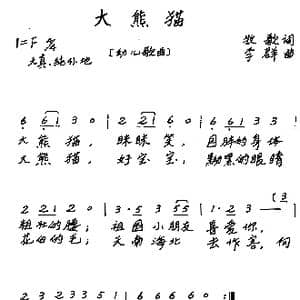 大熊猫
1=F 2/4
[幼儿歌曲]
牧歌词
李群曲
天真、纯朴地
6 61 3 0 | 2 21 6 0 | 6 61 3 3
大熊猫，眯眯笑，圆胖的身体
大熊猫，好宝宝；黝黑的眼睛
2 21 2 0 | 3·5 3 55 | 1·2 3 (3
粗壮的腰；祖国小朋友喜爱你，
花白的毛；天南海北去作客，问
2 3 2 3 3 5 | 6 6 6 6 6 0 :||